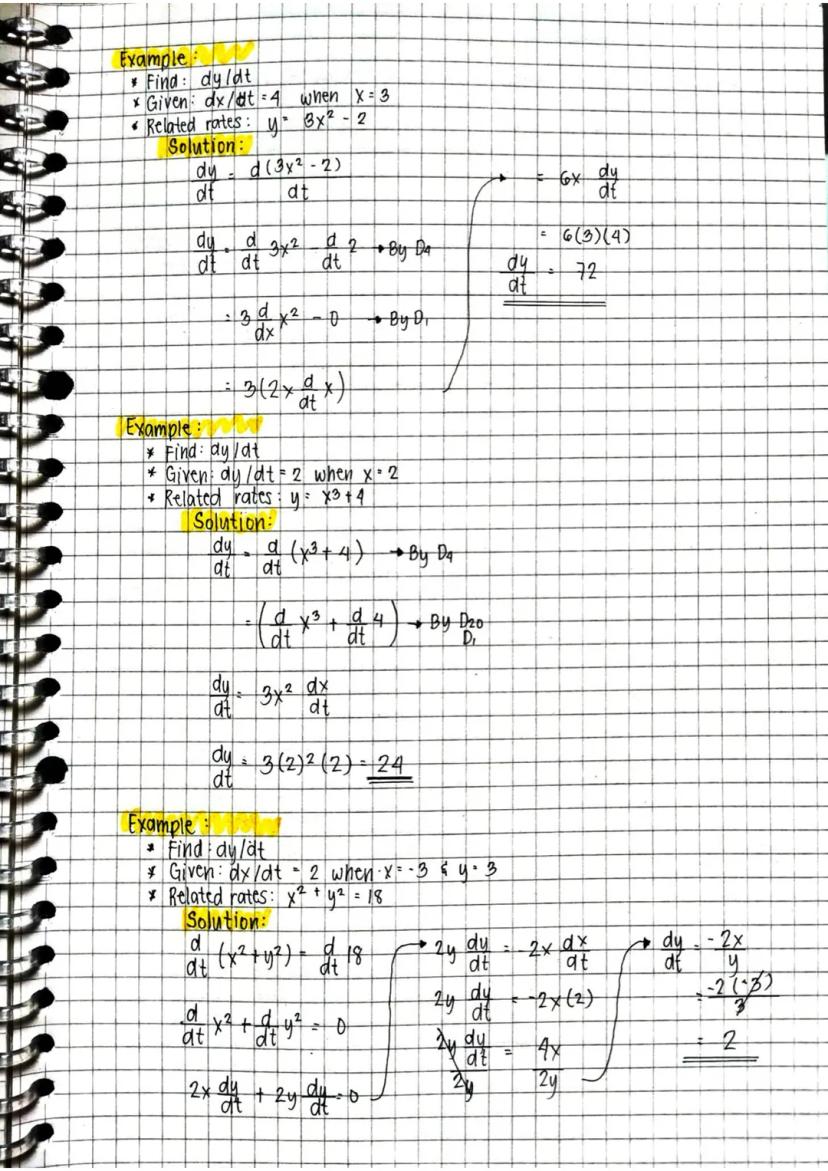 Example:
* Find: dy/dt
* Given: dx/dt = 4 when x = 3
* Related rates: y = 3x² - 2
Solution:
dy/dt = d(3x² - 2)/dt
dy/dt = d/dt 3x² - d/dt 2 → By D4
= 3 d/dx x² - 0 → By D1
= 3(2x d/dt x)
→ = 6x dy/dt
= 6(3)(4)
dy/dt = 72
Example:
* Find: dy/dt
* Given: dy/dt = 2 when x = 2
* Related rates: y = x³ + 4
Solution:
dy/dt = d/dt (x³ + 4) → By D4
= (d/dt x³ + d/dt 4) → By D20
D1
dy/dt = 3x² dx/dt
dy/dt = 3(2)² (2) = 24
Example:
* Find: dy/dt
* Given: dx/dt = 2 when x = -3 & y = 3
* Related rates: x² + y² = 18
Solution:
d/dt (x² + y²) = d/dt 18
d/dt x² + d/dt y² = 0
2x dy/dt + 2y dy/dt = 0
→ 2y dy/dt = -2x dx/dt
2y dy/dt = -2x(2)
2y dy/dt / 2y = 4x / 2y
→ dy/dt = -2x/y
= -2(-3)/3
= 2